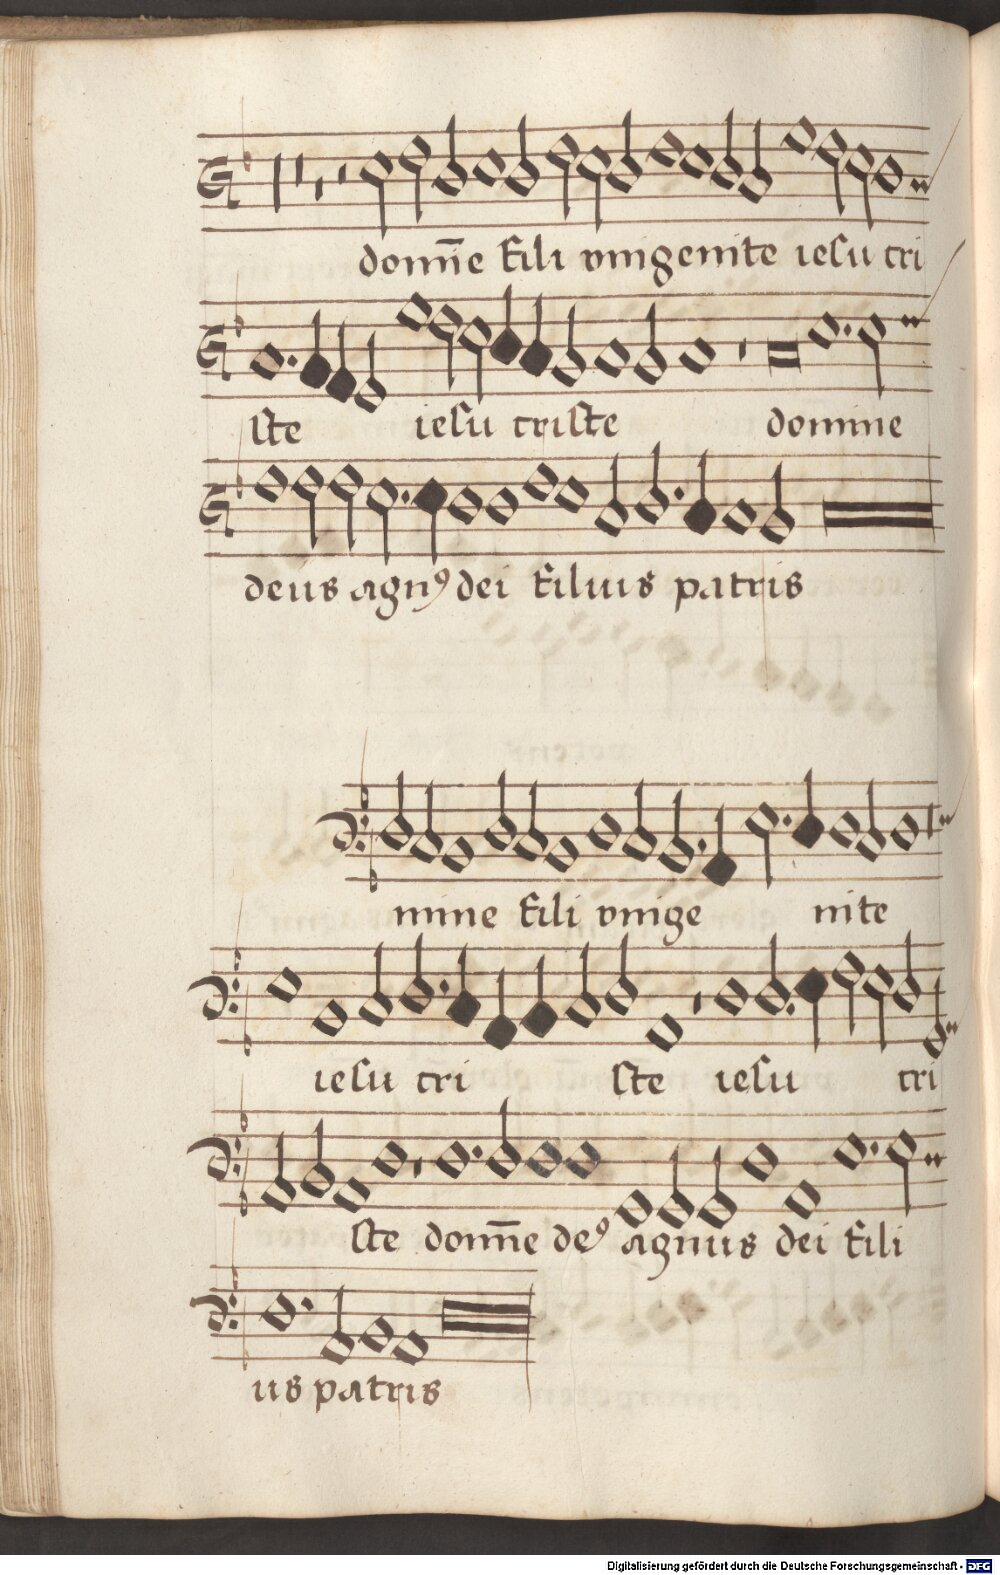 dom̄e fili vnigenite iesu cri
ste iesu criste domine
deus agnꝰ dei filius patris
mine fili vnige nite
iesu cri ste iesu cri
ste dom̄e deꝰ agnus dei fili
us patris
Digitalisierung gefördert durch die Deutsche Forschungsgemeinschaft - DFG